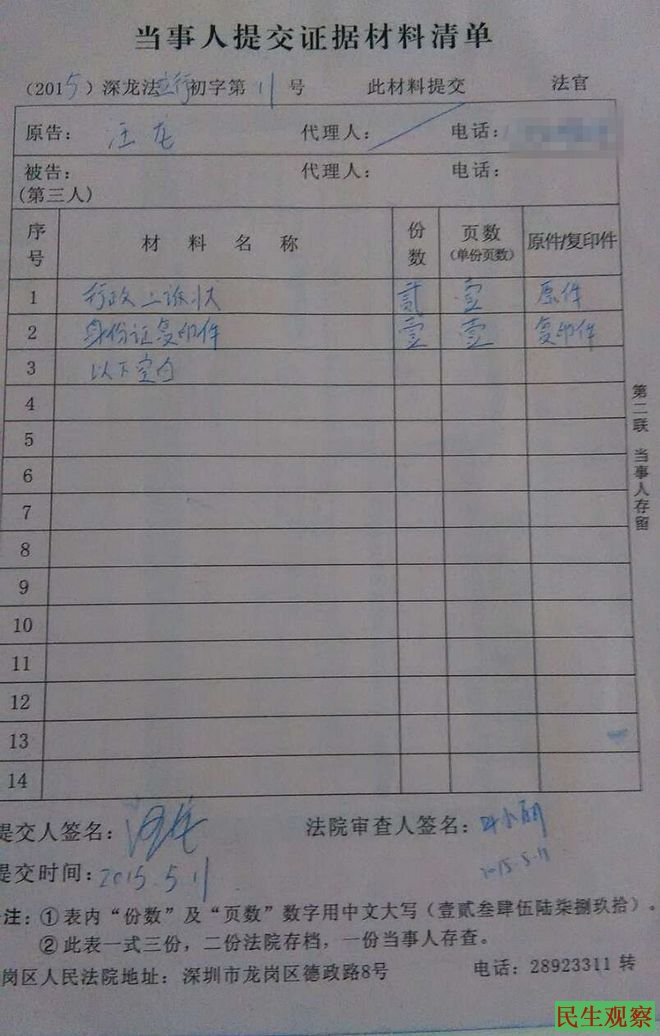 当事人提交证据材料清单
(2015)深龙法立行初字第11号 此材料提交 法官
原告: 汪龙 代理人: 电话:
被告: 代理人: 电话:
(第三人)
序号 材 料 名 称 份数 页数(单份页数) 原件/复印件
1 行政上诉状 贰 壹 原件
2 身份证复印件 壹 壹 复印件
3 以下空白
4
5
6
7
8
9
10
11
12
13
14
第二联 当事人存留
提交人签名: 法院审查人签名:
提交时间: 2015.5.11 2015.5.11
注: ①表内“份数”及“页数”数字用中文大写(壹贰叁肆伍陆柒捌玖拾)。
②此表一式三份,二份法院存档,一份当事人存查。
岗区人民法院地址: 深圳市龙岗区德政路8号 电话: 28923311 转
民生观察